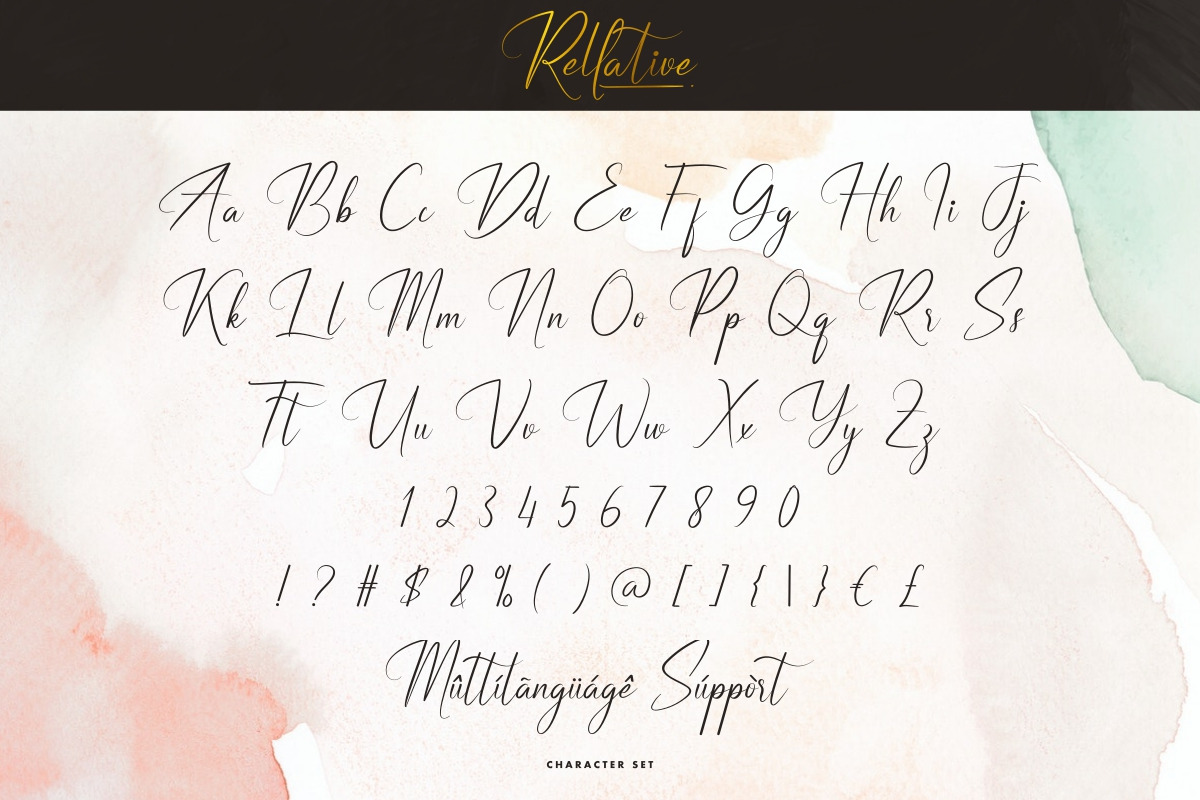 Rellative
Aa Bb Cc Dd Ee Ff Gg Hh Ii Jj
Kk Ll Mm Nn Oo Pp Qq Rr Ss
Tt Uu Vv Ww Xx Yy Zz
1 2 3 4 5 6 7 8 9 0
! ? # $ & % ( ) @ [ ] { | } € £
Mûltílãngüágê Súppòrt
CHARACTER SET